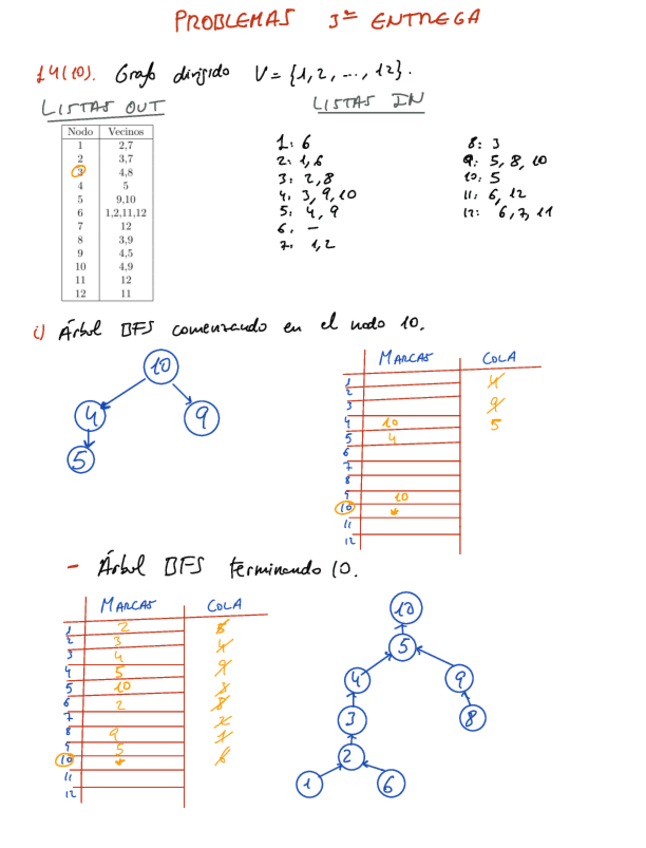 PROBLEMAS 3ª ENTREGA
14(10). Grafo dirigido V = {1, 2, ..., 12}.
LISTAS OUT
Nodo Vecinos
1 2,7
2 3,7
3 4,8
4 5
5 9,10
6 1,2,11,12
7 12
8 3,9
9 4,5
10 4,9
11 12
12 11
LISTAS IN
1: 6
2: 1, 6
3: 2, 8
4: 3, 9, 10
5: 4, 9
6: –
7: 1, 2
8: 3
9: 5, 8, 10
10: 5
11: 6, 12
12: 6, 7, 11
i) Árbol BFS comenzando en el nodo 10.
10
4 9
5
MARCAS COLA
1 4
2
3 9
4 10 5
5 4
6
7
8
9 10
10 *
11
12
- Árbol BFS terminando 10.
MARCAS COLA
1 2 5
2 3 4
3 4
4 5 9
5 10 3
6 2 8
7 2
8 9 1
9 5
10 * 6
11
12
10
5
4 9
3 8
2
1 6